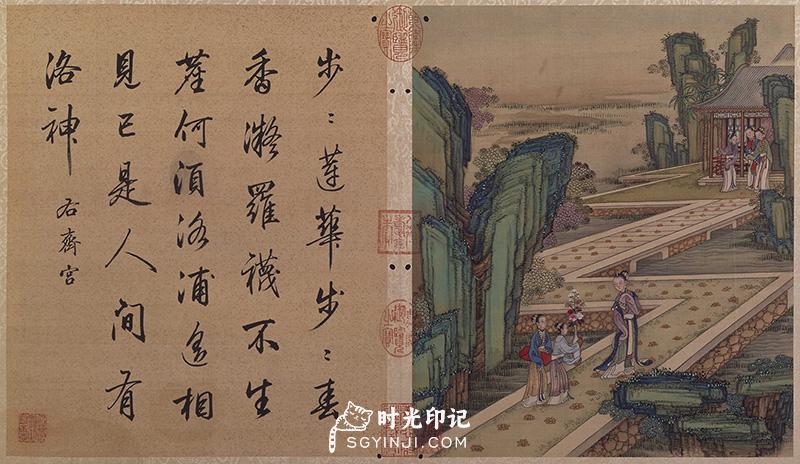 步〻蓮華步〻春
香凝羅襪不生
塵何須洛浦遙相
見已是人間有
洛神 右齊宮
时光印记
SGYINJI.COM